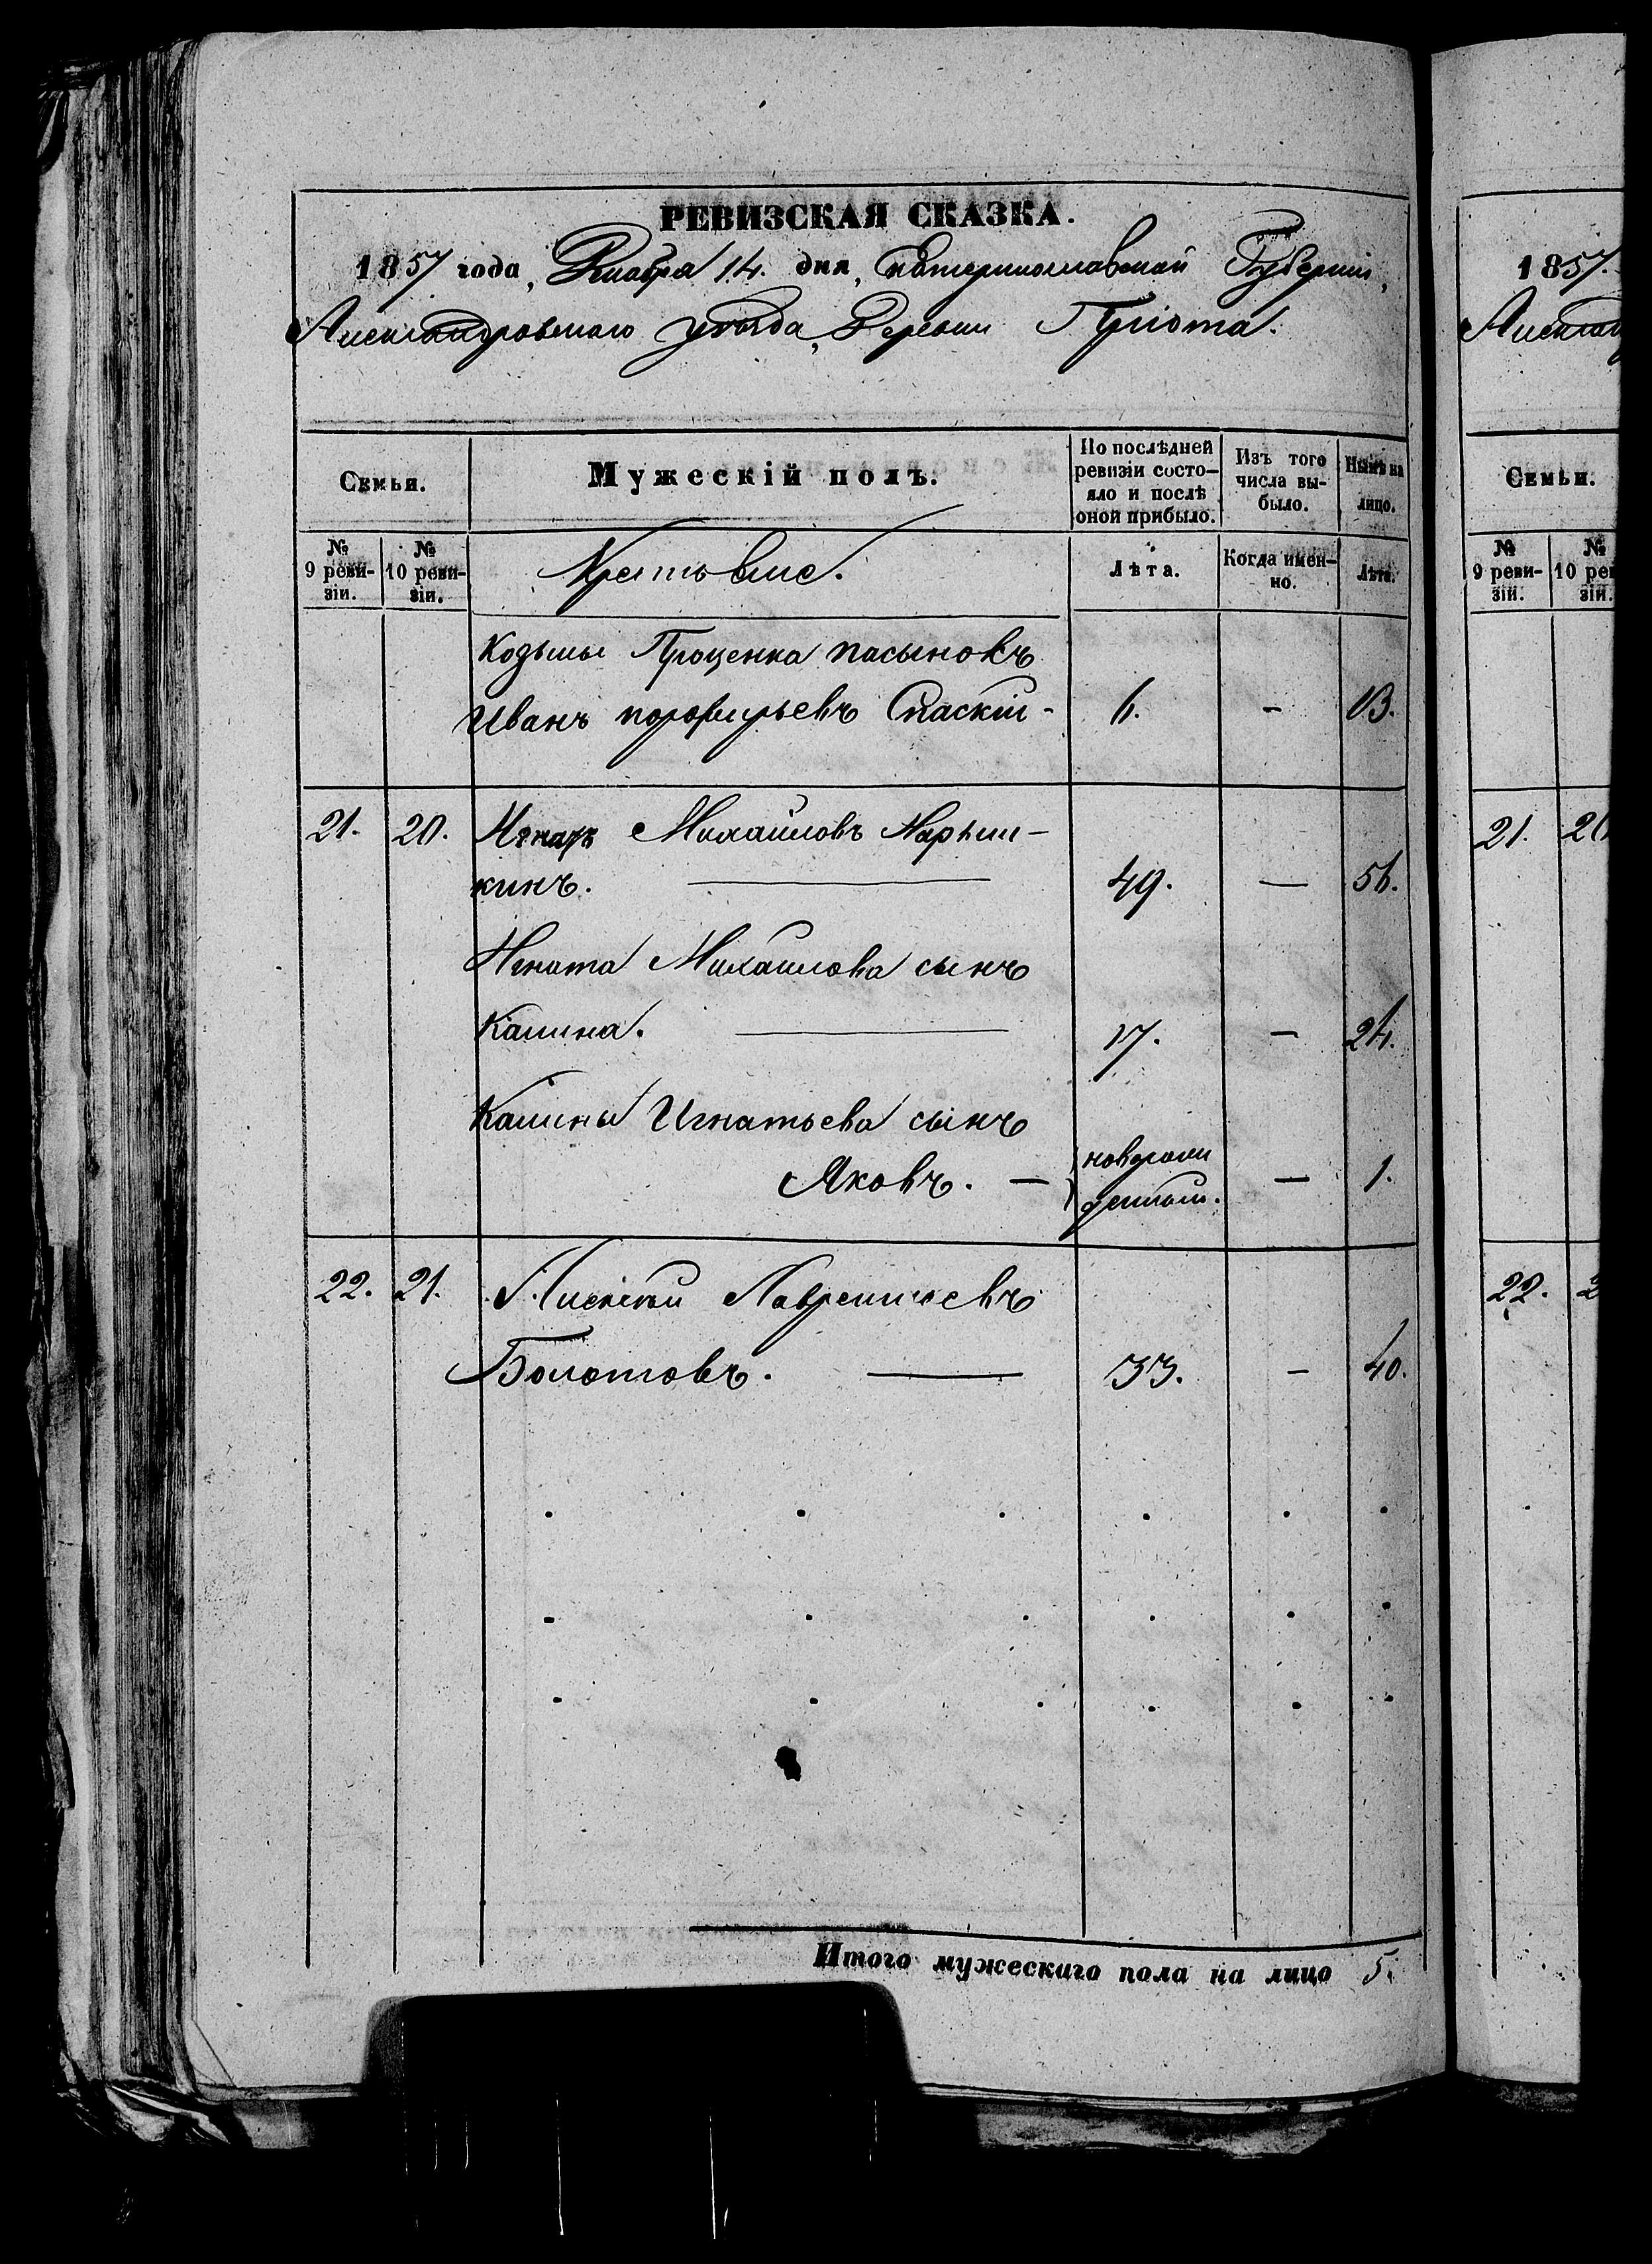 РЕВИЗСКАЯ СКАЗКА.
1857 года, Ноября 14. дня, Екатеринославской Губерніи,
Александровскаго уѣзда, Деревни Пріюта.
Семьи.
Мужескій полъ.
По послѣдней ревизіи состо-
яло и послѣ оной прибыло.
Изъ того числа вы-
было.
Нынѣ на лицо.
№ 9 реви-
зіи.
№ 10 реви-
зіи.
Крестьяне.
Лѣта.
Когда имен-
но.
Лѣта.
Козьмы Проценка пасынокъ
Иванъ порфирьевъ Спаскій - 6. - 13.
21. 20. Игнатъ Михайловъ Нарыш-
кинъ. — 49. — 56.
Игната Михайлова сынъ
Калина. — 17. — 24.
Калины Игнатьева сынъ
Яковъ. — новорож
денный. — 1.
22. 21. Алексѣй Лаврентьевъ
Болотовъ. — 33. - 40.
Итого мужескаго пола на лицо 5.
1857.
Семьи.
№ 9 реви-
зіи.
21.
22.